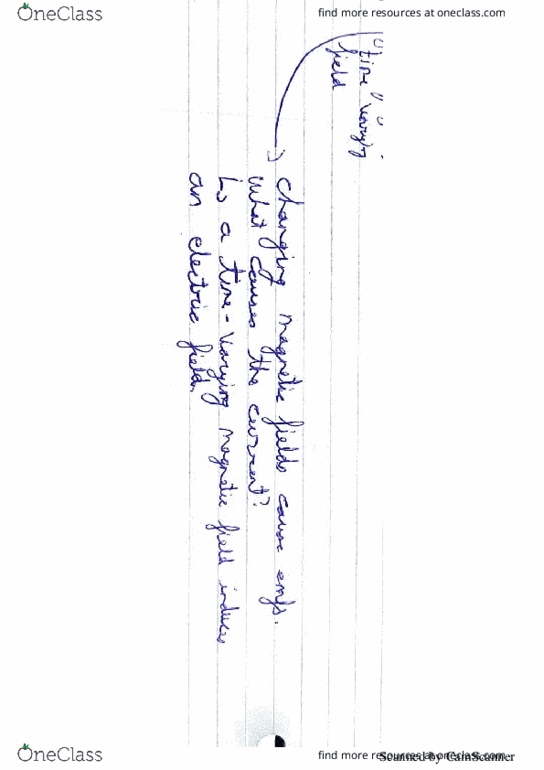 OneClass
find more resources at oneclass.com
"time varying
field
changing magnetic fields cause emfs.
what causes the current?
↳ a time-varying magnetic field induces
an electric field.
OneClass
find more resources at oneclass.com
Scanned by CamScanner